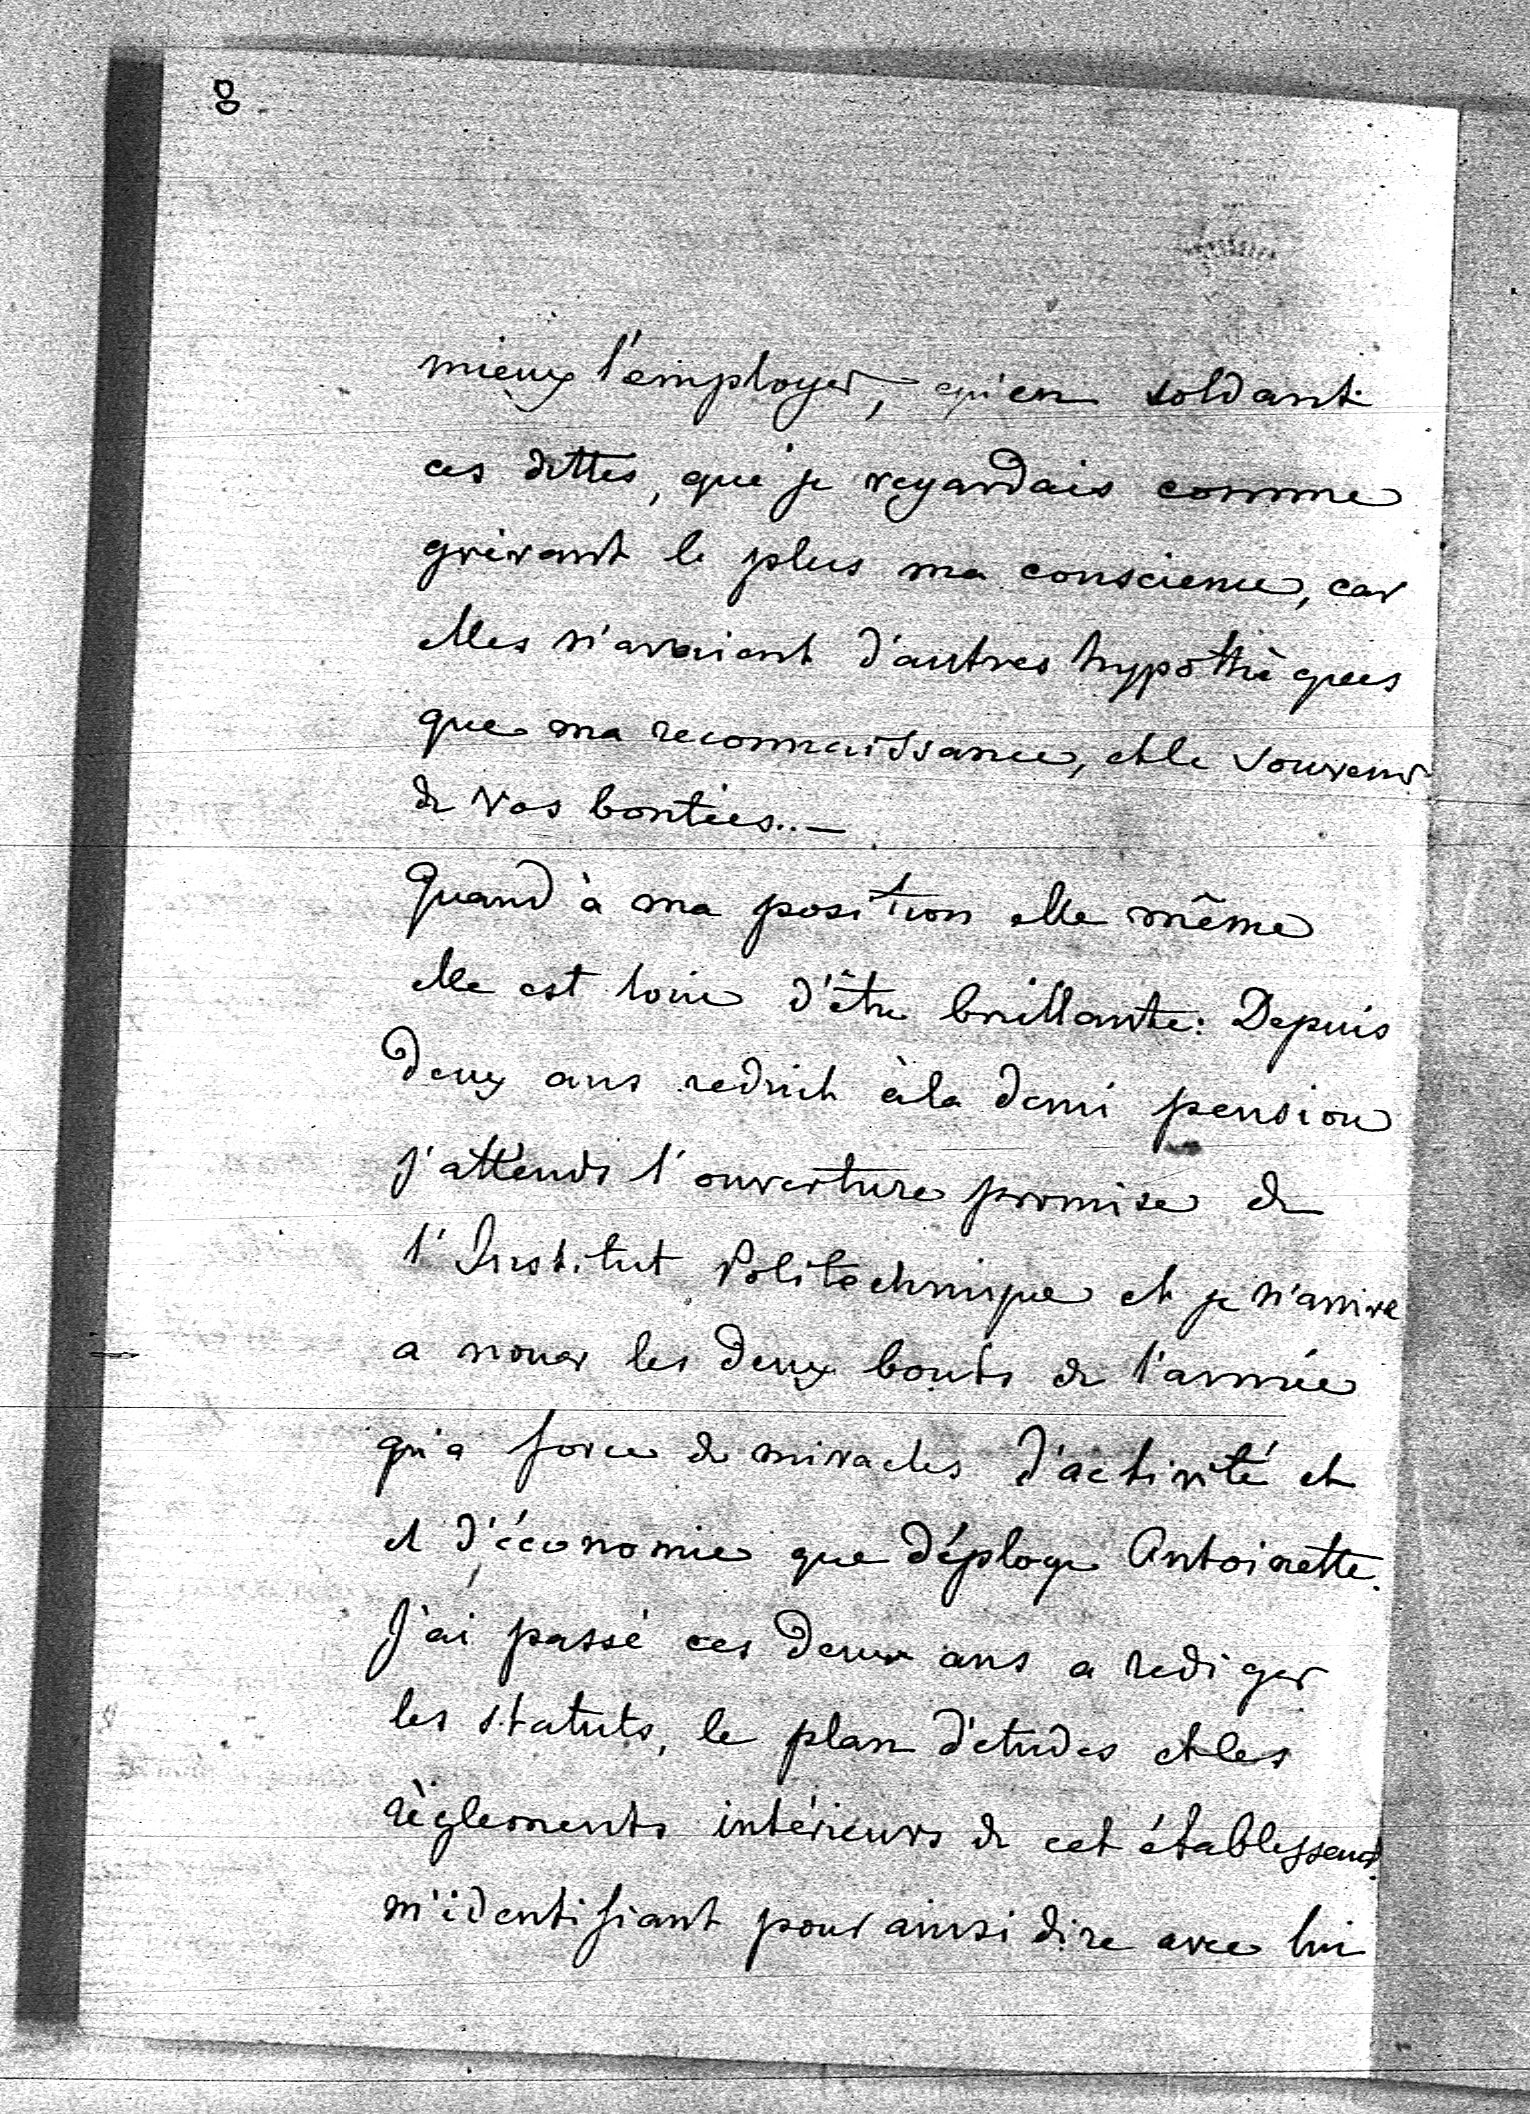 8
mieux l'employer, qu'en soldant
ces dettes, que je regardais comme
grévant le plus ma conscience, car
elles n'avaient d'autres hypothèques
que ma reconnaissance, et le souvenir
de vos bontées..—
Quand à ma position elle même
elle est loin d'être brillante: Depuis
deux ans reduit à la demi pension
j'attends l'ouverture promise de
l'Institut Politechnique et je n'arrive
a nouer les deux bouts de l'année
qu'a force de miracles d'activité et
et d'économie que déploye Antoinette.
J'ai passé ces deux ans a rediger
les statuts, le plan d'etudes et les
règlements intérieurs de cet établissemt
m'identifiant pour ainsi dire avec lui